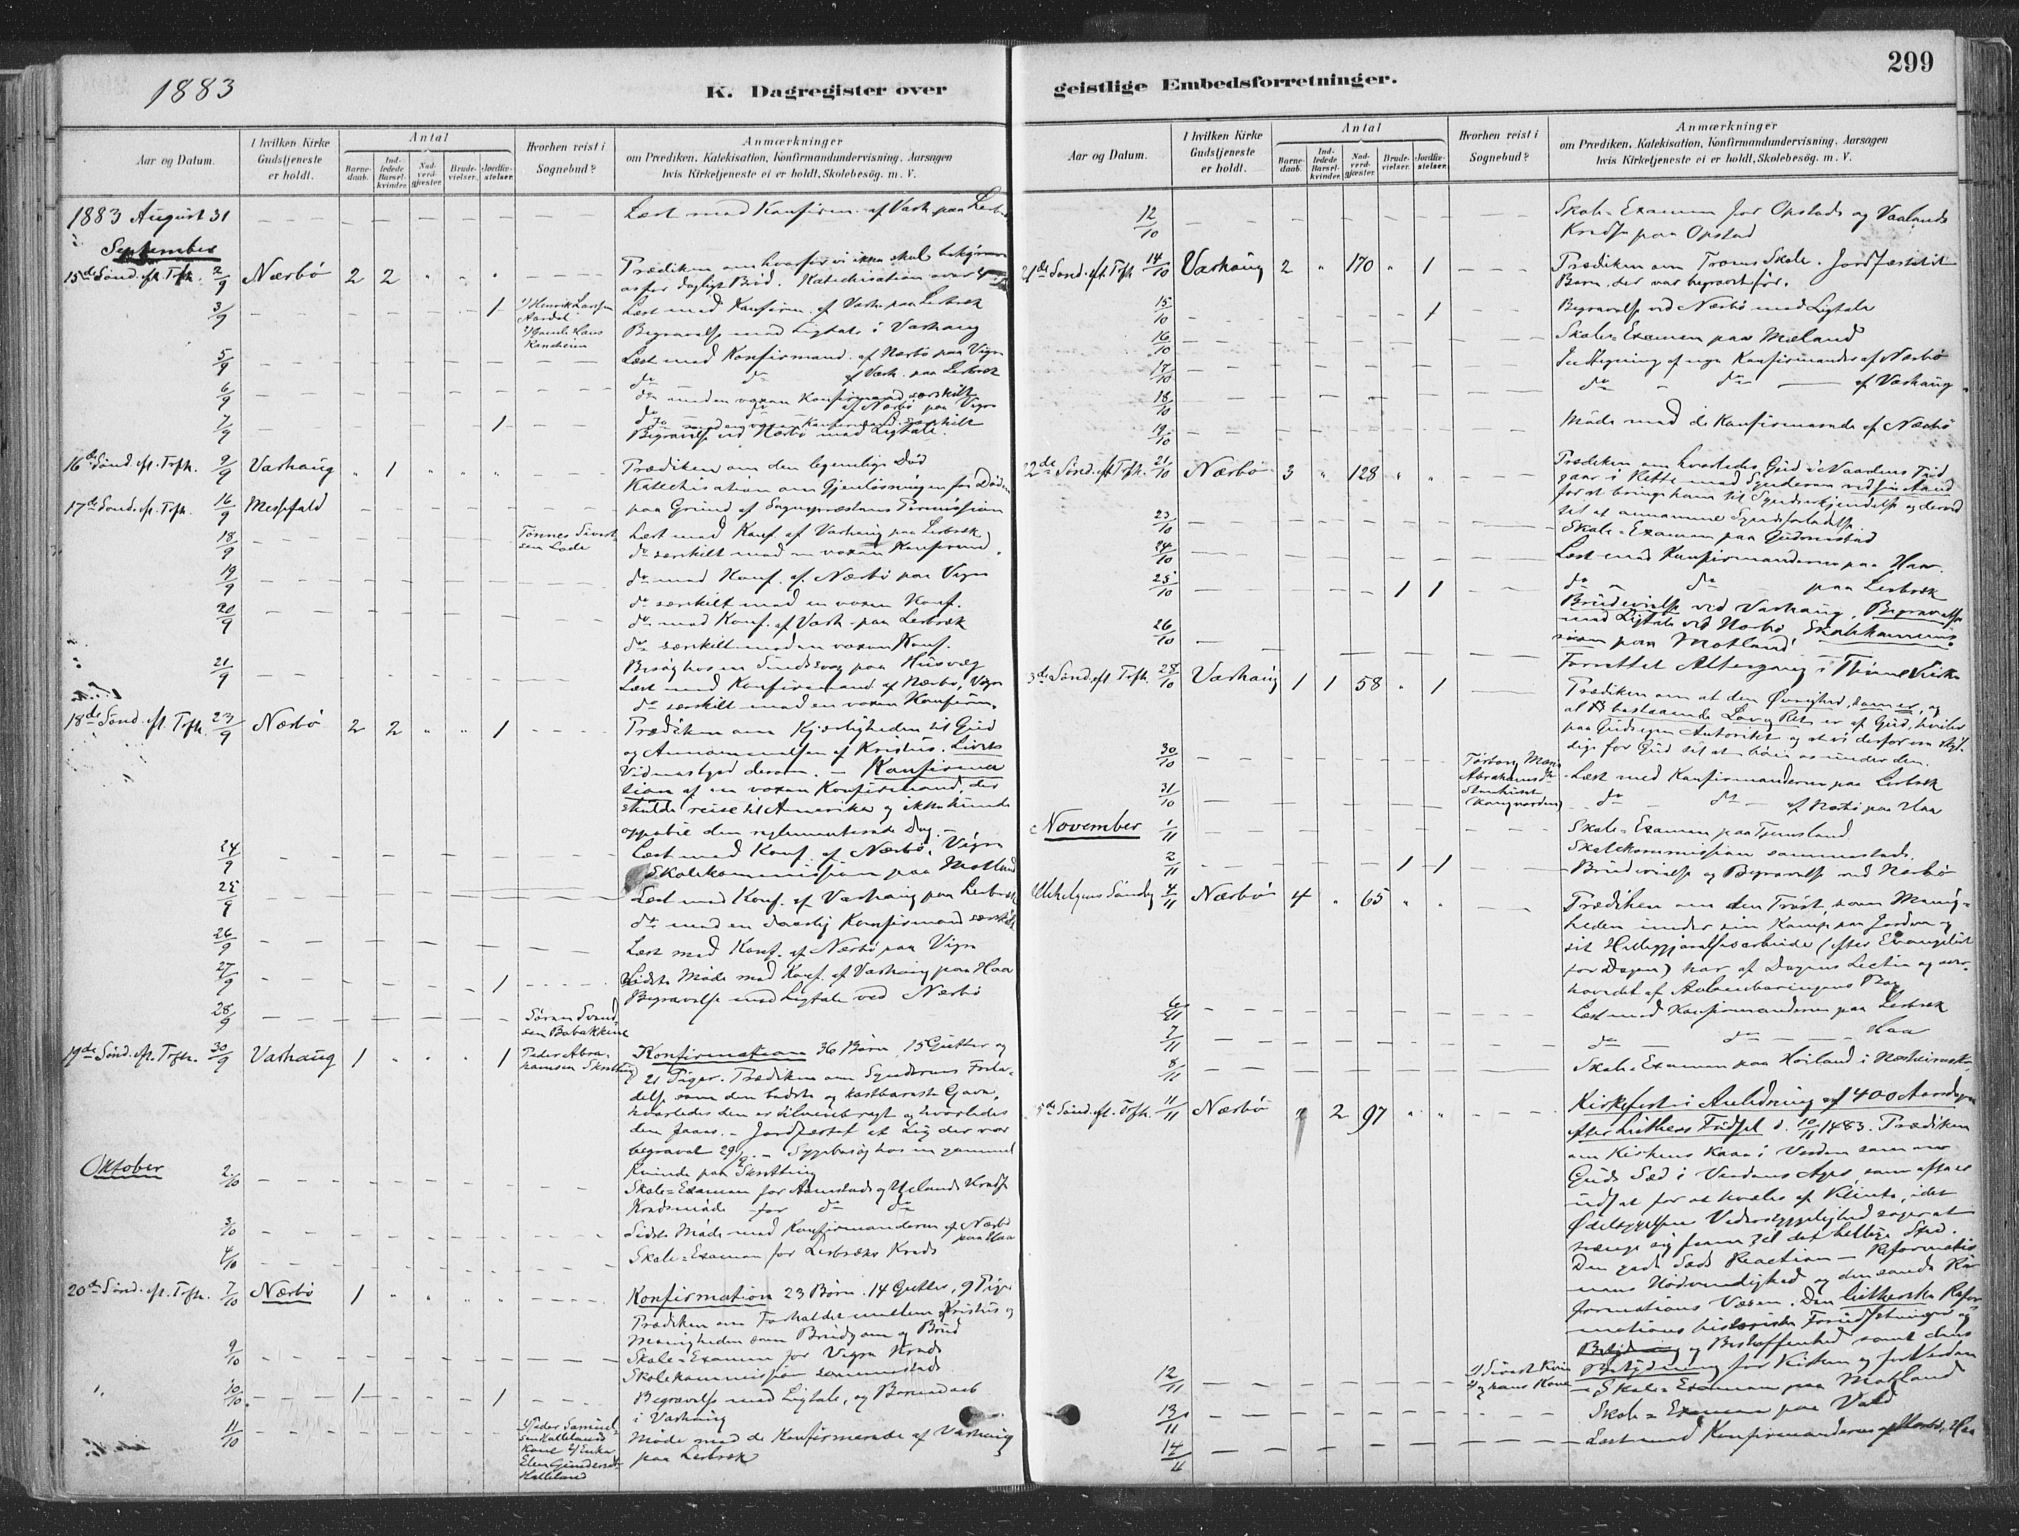 1883
K. Dagregister over
Aar og Datum.
I hvilken Kirke Gudstjeneste er holdt.
Antal
Barnedaab.
Indledede Barselkvinder.
Nadverdgjæster.
Brudevielser.
Jordfæstelser.
Hvorhen reist i Sognebud?
Anmærkninger
om Prædiken, Katekisation, Konfirmandundervisning, Aarsagen
hvis Kirketjeneste ei er holdt, Skolebesøg. m. V.
1883 August 31
Læst med Konfirm. af Varh. paa
September
15de Sønd. eft. Trfh. 2/9 Nærbø 2 2
Prædiken om hvorfor vi ikke skal bekymre
os for dagligt Brød. Katechisation over
3/9 1 1) Henrik Larsen Læst med Konfirm. af Varh. paa Lerbræk
Aardal Begravelse med Ligtale i Varhaug
5/9 Læst med Konfirmand. af Nærbø paa Vigre
do do af Varh. paa Lerbræk
6/9 do med en voxen Konfirmand særskilt
do do af Nærbø paa Vigre
7/9 1 do med en voxen Konfirmand særskilt
Begravelse ved Nærbø med Ligtale.
16de Sønd. eft. Trfh. 9/9 Varhaug 1
Prædiken om den legemlige Død
Katechisation om Gjenløsningen fra Døden
17de Sønd. eft. Trfh. 16/9 Messefald
paa Grund af Sognepræstens Permission
18/9 Tønnes Sivert Læst med Konf. af Varhaug paa Lerbræk
sen Lode do særskilt med en voxen Konfirm.
19/9 do med Konf. af Nærbø paa Vigre
do særskilt med en voxen Konf.
20/9 do med Konf. af Varh. paa Lerbræk
do særskilt med en voxen Konf.
21/9 Besøg hos en Sindssvag paa Husvæg
Læst med Konfirmand. af Nærbø, Vigre
do særskilt med en voxen Konfirm.
18de Sønd. eft. Trfh. 23/9 Nærbø 2 2 1
Prædiken om Kjærligheden til Gud
og Annammelsen af Kristus. Livets
Vidnesbyrd derom. – Konfirma
tion af en voxen Konfirmand, der
skulde reise til Amerika og ikke kunde
oppebie den reglementerede Dag. –
24/9 Læst med Konf. af Nærbø. Vigre
Skolekommission paa Motland
25/9 Læst med Konf. af Varhaug paa Lerbræk
do med en daarlig Konfirmand særskilt
26/9 Læst med Konf. af Nærbø paa Vigre
27/9 1 Sidste Møde med Konf. af Varhaug paa Haa
Begravelse med Ligtale ved Nærbø
28/9 Søren Svend
sen
19de Sønd. eft. Trfh. 30/9 Varhaug 1 1 Peder Abra
hamsen Skretting
Konfirmation 36 Børn, 15 Gutter og
21 Piger. Prædiken om Syndernes Forla
delse som den bedste og kostbareste Gave,
hvorledes den er tilveiebragt og hvorledes
den faaes. – Jordfæstet et Lig der var
begravet 29/9. – Sygebesøg hos en gammel
Kvinde paa Skretting
Oktober 2/10
Skole-Examen for Aamstads og Ueland Kreds
Kredsmøde for do do
3/10 Sidste Møde med Konfirmanderne af Nærbø
paa Haa
4/10 Skole-Examen for Lerbræks Kreds
20de Sønd. eft. Trfh. 7/10 Nærbø 1
Konfirmation 23 Børn. 14 Gutter, 9 Piger
Prædiken om Forholdet mellem Kristus og
Menigheden som Brudgom og Brud
9/10 Skole-Examen for Vigre Kreds
Skolekommission sammesteds
10/10 1 1 Begravelse med Ligtale, og Barnedaab
i Varhaug
11/10 Peder Samuel
sen Hallelands
Kone
Møde med de Konfirmerede af Varhaug
paa Lerbræk
299
geistlige Embedsforretninger.
Aar og Datum.
I hvilken Kirke Gudstjeneste er holdt.
Antal
Barnedaab.
Indledede Barselkvinder.
Nadverdgjæster.
Brudevielser.
Jordfæstelser.
Hvorhen reist i Sognebud?
Anmærkninger
om Prædiken, Katekisation, Konfirmandundervisning, Aarsagen
hvis Kirketjeneste ei er holdt, Skolebesøg. m. V.
12/10 Skole-Examen for Opstads og Vaalands
Kreds paa Opstad
21de Sønd. eft. Trfh. 14/10 Varhaug 2 170 1
Prædiken om Troens Skole. Jordfæstet et
Barn, der var begravet før.
15/10 1 Begravelse ved Nærbø med Ligtale
16/10 Skole-Examen paa Mæland
17/10 Indtegning af nye Konfirmander af Nærbø
18/10 do do af Varhaug
19/10 Møde med de Konfirmerede af Nærbø
22de Sønd. eft. Trfh. 21/10 Nærbø 3 128
Prædiken om hvorledes Gud i Naadens Tid
gaar i Rette med Synderen ved sin Aand
for at bringe ham til Syndserkjendelse og derved
til at annamme Syndsforladelse
23/10 Skole-Examen paa
24/10 Læst med Konfirmanderne paa Haa.
25/10 1 1 do do paa Lerbræk
Brudevielse ved Varhaug. Begravelse
26/10 med Ligtale ved Nærbø. Skolekommis
sion paa Motland
Forrettet Altergang i Thime Kirke
3de Sønd. eft. Trfh. 28/10 Varhaug 1 1 58 1
Prædiken om at den Øvrighed, som er, og
al bestaaende Lov og Ret er af Gud, hviler
paa Guds egen Autoritet og at vi derfor ere skyl
dige for Gud til at bøie os under den.
30/10 Torborg
Abrahamsdtr.
Læst med Konfirmanderne paa Lerbræk
31/10 do do af Nærbø paa Haa
November 1/11 Skole-Examen paa Tjemsland
Skolekommission sammesteds.
2/11 1 1 Brudevielse og Begravelse ved Nærbø
Allehelgens Søndag 4/11 Nærbø 4 65
Prædiken om den Trøst, som Menig-
heden under sin Kamp paa Jorden og
sit Helliggjørelsesarbeide (efter Evangeliet
for Dagen) har af Dagens Lectie og over-
hovedet af Aabenbaringens Bog
6/11 Læst med Konfirmanderne paa Lerbræk
7/11 do do Haa
8/11 Skole-Examen paa Høiland i
5te Sønd. eft. Trfh. 11/11 Nærbø 1 2 97
Kirkefest i Anledning af 400 Aarsdagen
efter Luthers Fødsel d. 10/11 1483. Prædiken
om Kirkens Kaar i Verden som
Guds Sæd i Verdens Ager, som
ud for at kvæles af Klinte, idet
Ødelæggelsens Vederstyggelighed søger at
trænge sig frem til det hellige Sted.
Den gode Sæds Reaction – Reformatio
nens Nødvendighed og den sande Re
formations Væsen. Den lutherske Refor
mations historiske Forudsætninger og
Betydning og Beskaffenhed samt dens
Betydning for Kirken og for Verden
12/11 1) Sivert
2) og hans Kone
Skole-Examen paa Motland
13/11 Skole-Examen paa Vold
14/11 Læst med Konfirmanderne af Nærbø, Haa